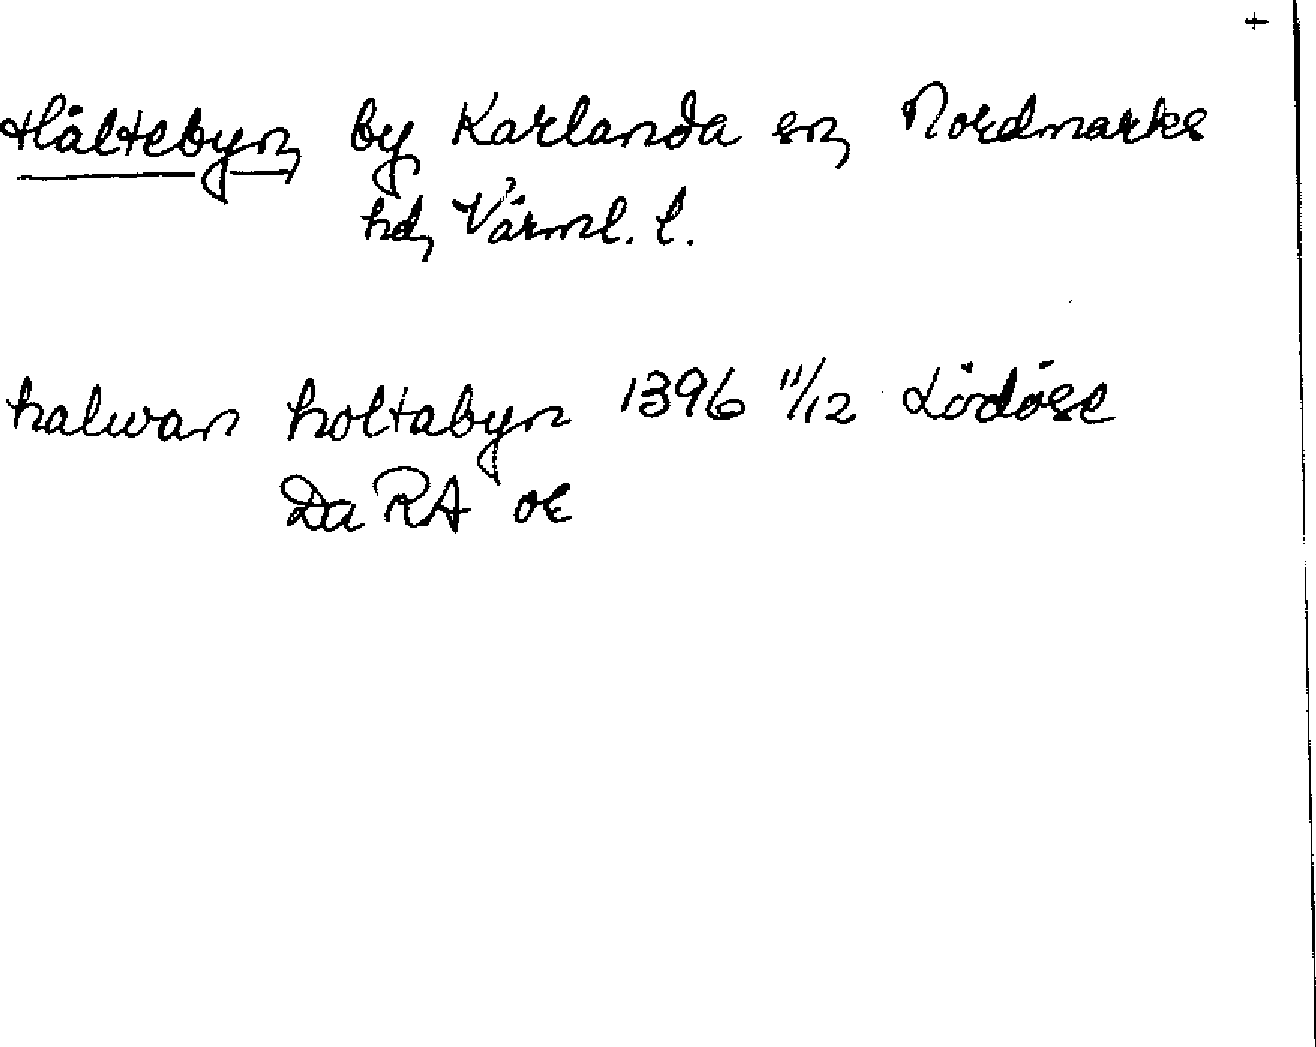 +
Håltebyn, by, Karlanda sn, Nordmarks
hd, Värml. l.
halwan holtabyn 1396 11/12 Lödöse
Da RA or